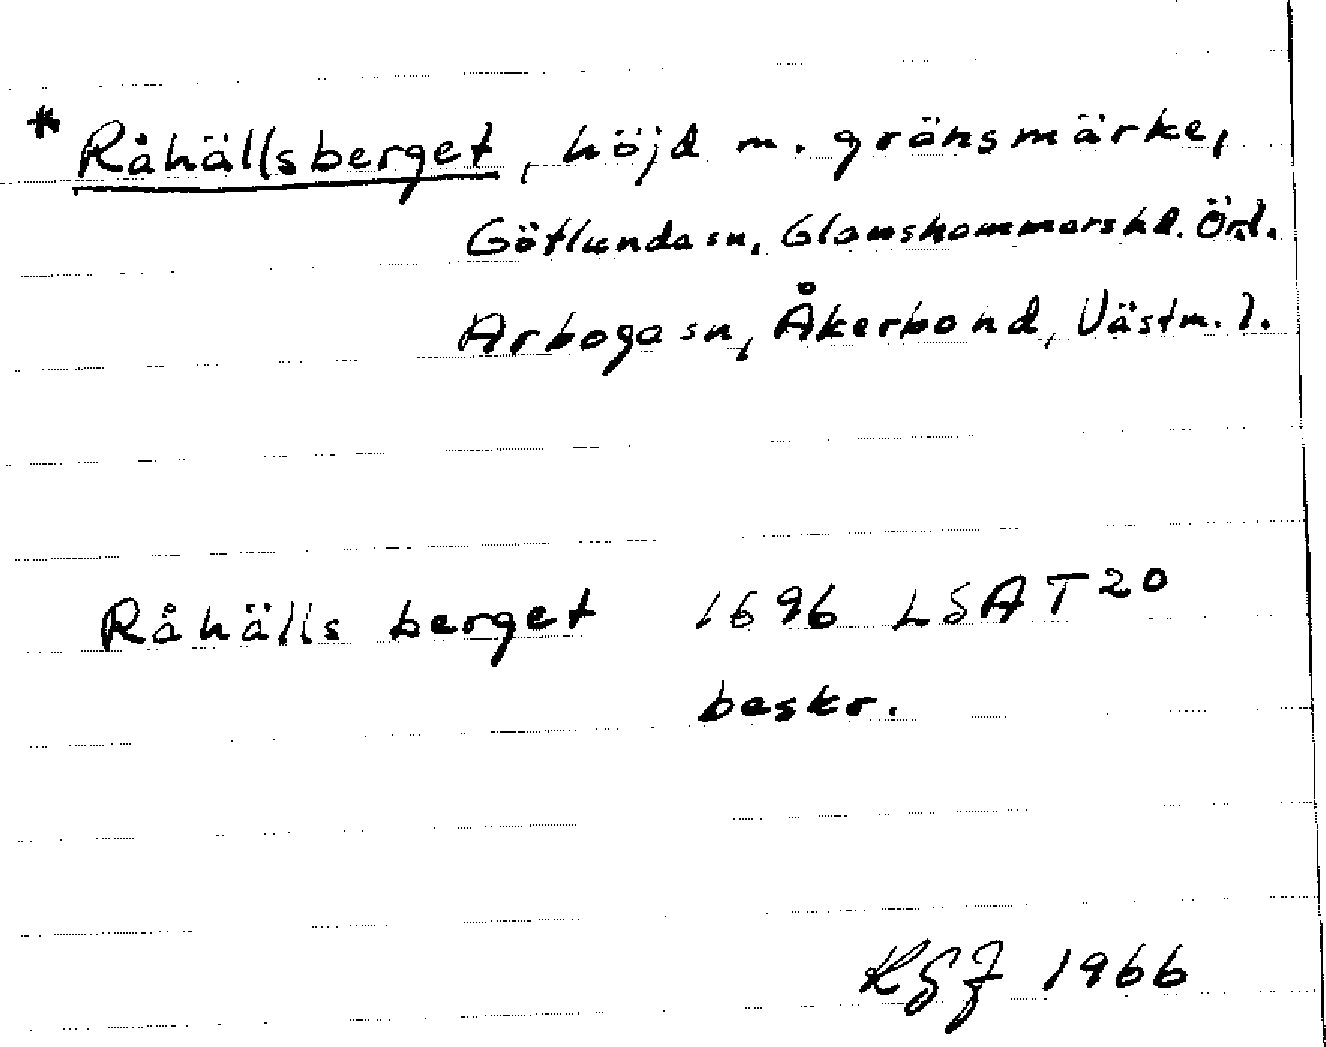 * Råhällsberget, höjd m. gränsmärke,
Götlunda sn, Glanshammars hd. Örl.
Arboga sn, Åkerbo hd, Västm. l.
Råhälls berget 1696 LSA T20
beskr.
KGJ 1966